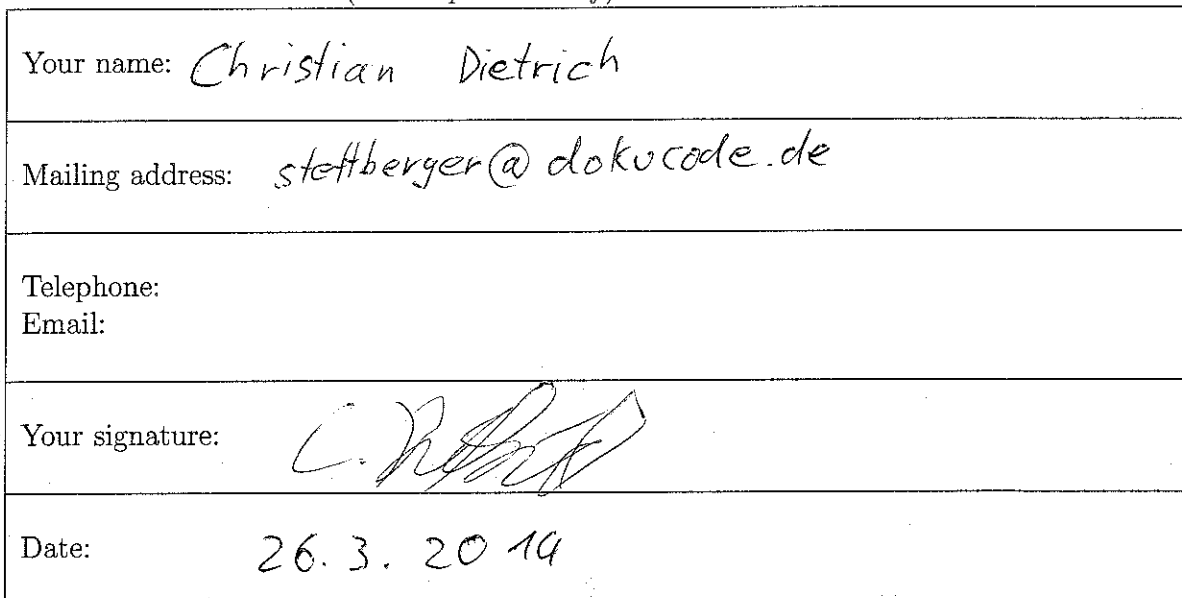 Your name: Christian Dietrich
Mailing address: stettberger@dokucode.de
Telephone:
Email:
Your signature:
Date: 26.3.2019